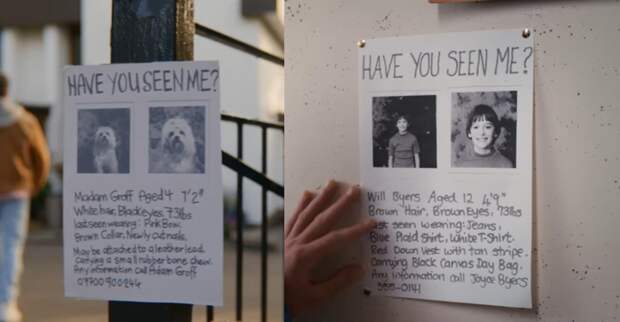 HAVE YOU SEEN ME?
Madam Groff Aged 4 1'2"
White hair, Black eyes, 73lbs
last seen wearing: Pink Bow.
Brown Collar, Newly cut nails.
May be attached to a leather lead.
Carrying a small rubber bone chew.
Any information call Adam Groff
07700 900246
HAVE YOU SEEN ME?
Will Byers Aged 12 4'9"
Brown Hair, Brown Eyes, 73lbs
Last seen wearing: Jeans,
Blue Plaid Shirt, White T-Shirt.
Red Down Vest with tan stripe.
Carrying Black Canvas Day Bag.
Any information call Joyce Byers
555-0141